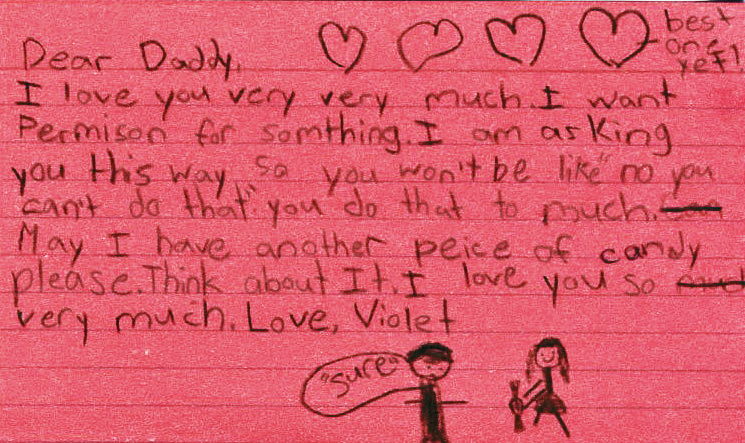 Dear Daddy,
best
one
yet!
I love you very very much. I want
Permison for somthing. I am asking
you this way so you won't be like "no you
can't do that" you do that to much.
May I have another peice of candy
please. Think about It. I love you so
very much. Love, Violet
"sure"